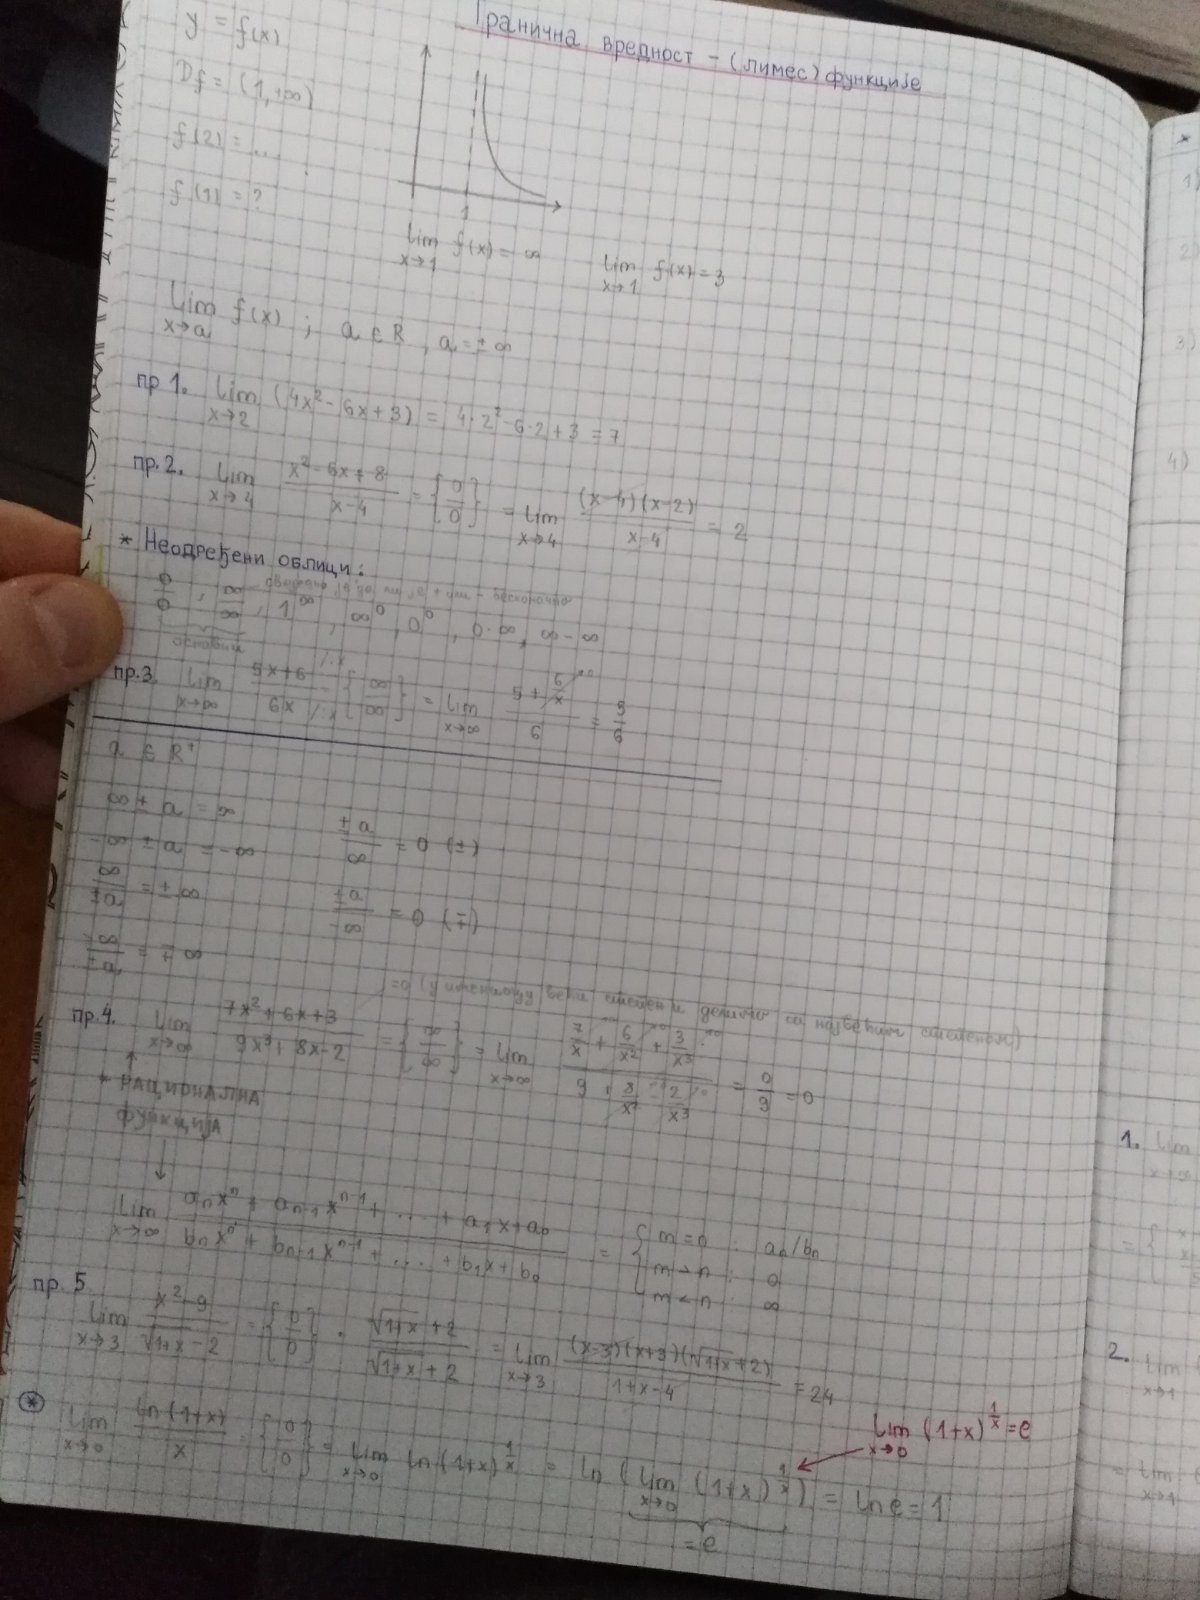 Гранична вредност - (лимес) функције
y = f(x)
Df = (1, +∞)
f(2) = ..
f(1) = ?
1
lim x→1 f(x) = ∞
lim x→1 f(x) = 3
lim x→a f(x) ; a ∈ R, a = ± ∞
пр 1. lim x→2 (4x² - 6x + 3) = 4·2² - 6·2 + 3 = 7
пр. 2. lim x→4 (x² - 6x + 8)/(x - 4) = {0/0} = lim x→4 ((x-4)(x-2))/(x-4) = 2
* Неодређени облици:
0/0, ∞/∞, 1^∞, ∞^0, 0^0, 0·∞, ∞ - ∞
основни
пр. 3. lim x→∞ (5x+6)/(6x) /:x /:x = {∞/∞} = lim x→∞ (5 + 6/x →0)/6 = 5/6
a ∈ R⁺
∞ ± a = ∞
-∞ ± a = -∞
∞/±a = ± ∞
-∞/±a = ∓ ∞
±a/∞ = 0 (±)
±a/-∞ = 0 (∓)
=0 (у имениоцу већи степен и делимо са највећим степеном)
пр. 4. lim x→∞ (7x² + 6x + 3)/(9x³ + 8x - 2) = {∞/∞} = lim x→∞ (7/x + 6/x² + 3/x³)/(9 + 8/x² - 2/x³) = 0/9 = 0
* РАЦИОНАЛНА
функција
lim x→∞ (aₙxⁿ + aₙ₋₁xⁿ⁻¹ + ... + a₁x + a₀)/(bₙxⁿ + bₙ₋₁xⁿ⁻¹ + ... + b₁x + b₀) = { m = n : aₙ/bₙ
m > n : 0
m < n : ∞
пр. 5 lim x→3 (x² - 9)/(√(1+x) - 2) = {0/0} · (√(1+x) + 2)/(√(1+x) + 2) = lim x→3 ((x-3)(x+3)(√(1+x)+2))/(1+x-4) = 24
lim x→0 (1+x)^(1/x) = e
⊛ lim x→0 ln(1+x)/x = {0/0} = lim x→0 ln(1+x)^(1/x) = ln (lim x→0 (1+x)^(1/x)) = ln e = 1
= e
*
1)
2)
3)
4)
1. lim
2. lim
x→1
= lim
x→1